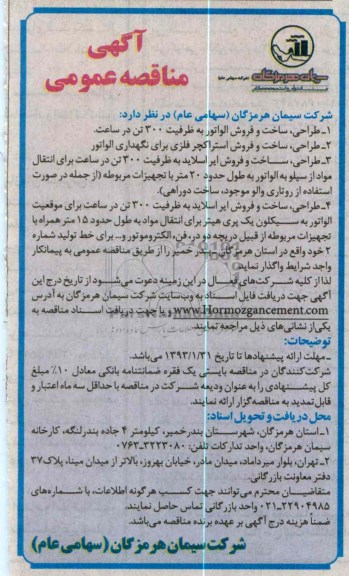 آگهی
مناقصه عمومی
سیمان هرمزگان
(شرکت سهامی عام)
شرکت سیمان هرمزگان (سهامی عام) در نظر دارد:
۱-طراحی، ساخت و فروش الواتور به ظرفیت ۳۰۰ تن در ساعت.
۲-طراحی، ساخت و فروش استراکچر فلزی برای نگهداری الواتور
۳-طراحی، ساخت و فروش ایر اسلاید به ظرفیت ۳۰۰ تن در ساعت برای انتقال
مواد از سیلو به الواتور به طول حدود ۲۰ متر با تجهیزات مربوطه (از جمله در صورت
استفاده از روتاری والو موجود، ساخت دوراهی).
۴-طراحی، ساخت و فروش ایر اسلاید به ظرفیت ۳۰۰ تن در ساعت برای موقعیت
الواتور به سیکلون یک پری هیتر برای انتقال مواد به طول حدود ۱۵ متر همراه با
تجهیزات مربوطه از قبیل دریچه دو در، فن، الکتروموتور و... برای خط تولید شماره
۲ خود واقع در استان هرمزگان - بندر خمیر را از طریق مناقصه عمومی به پیمانکار
واجد شرایط واگذار نماید.
لذا از کلیه شرکت‌های فعال در این زمینه دعوت می‌شود از تاریخ درج این
آگهی جهت دریافت فایل اسناد به وب‌سایت شرکت سیمان هرمزگان به آدرس
www.Hormozgancement.com و یا جهت دریافت اسناد مناقصه به
یکی از نشانی‌های ذیل مراجعه نمایند.
توضیحات:
ـ مهلت ارائه پیشنهادها تا تاریخ ۱۳۹۳/۱/۳۱ می‌باشد.
شرکت‌کنندگان در مناقصه بایستی یک فقره ضمانتنامه بانکی معادل ۱۰٪ مبلغ
کل پیشنهادی را به عنوان ودیعه شرکت در مناقصه با حداقل سه ماه اعتبار و
قابل تمدید به مناقصه‌گزار ارائه نمایند.
محل دریافت و تحویل اسناد:
۱-استان هرمزگان، شهرستان بندرخمیر، کیلومتر ۴ جاده بندرلنگه، کارخانه
سیمان هرمزگان، واحد تدارکات تلفن: ۳۲۲۳۰۸۰-۰۷۶۳
۲-تهران، بلوار میرداماد، میدان مادر، خیابان بهروز، بالاتر از میدان مینا، پلاک ۳۷
دفتر معاونت بازرگانی.
متقاضیان محترم می‌توانند جهت کسب هرگونه اطلاعات، با شماره‌های
۲۲۹۰۴۹۸۵-۰۲۱ واحد بازرگانی تماس حاصل نمایند.
ضمناً هزینه درج آگهی بر عهده برنده مناقصه می‌باشد.
شرکت سیمان هرمزگان (سهامی عام)